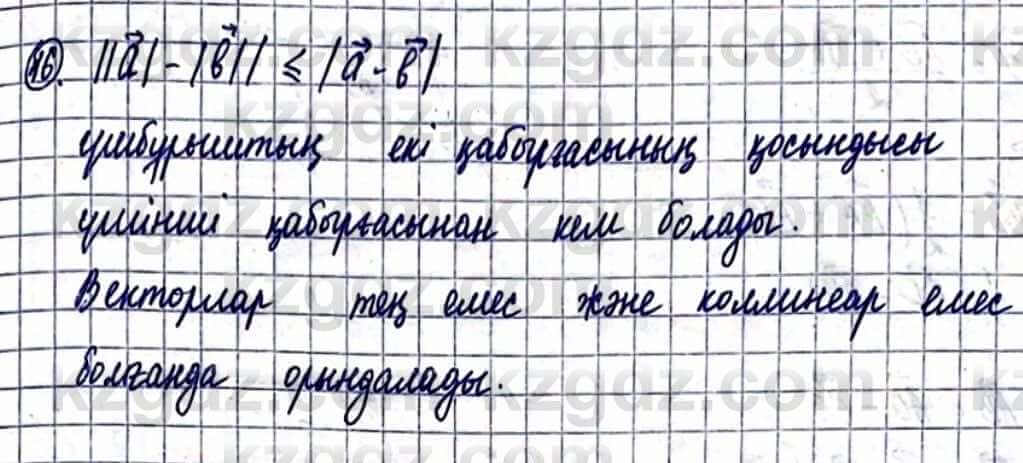 16. ||a⃗| - |b⃗|| ≤ |a⃗ - b⃗|
үшбұрыштың екі қабырғасының қосындысы
үшінші қабырғасынан кем болады.
Векторлар тең емес және коллинеар емес
болғанда орындалады.